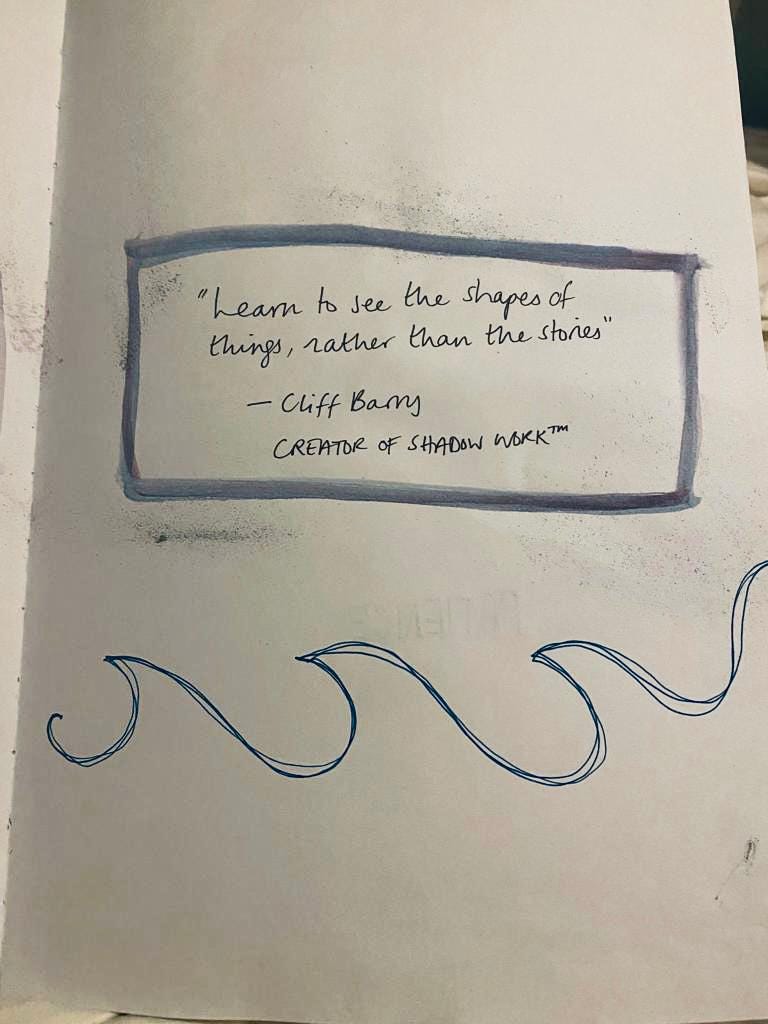 "Learn to see the shapes of
things, rather than the stories"
— Cliff Barry
CREATOR OF SHADOW WORK™
PATIENCE